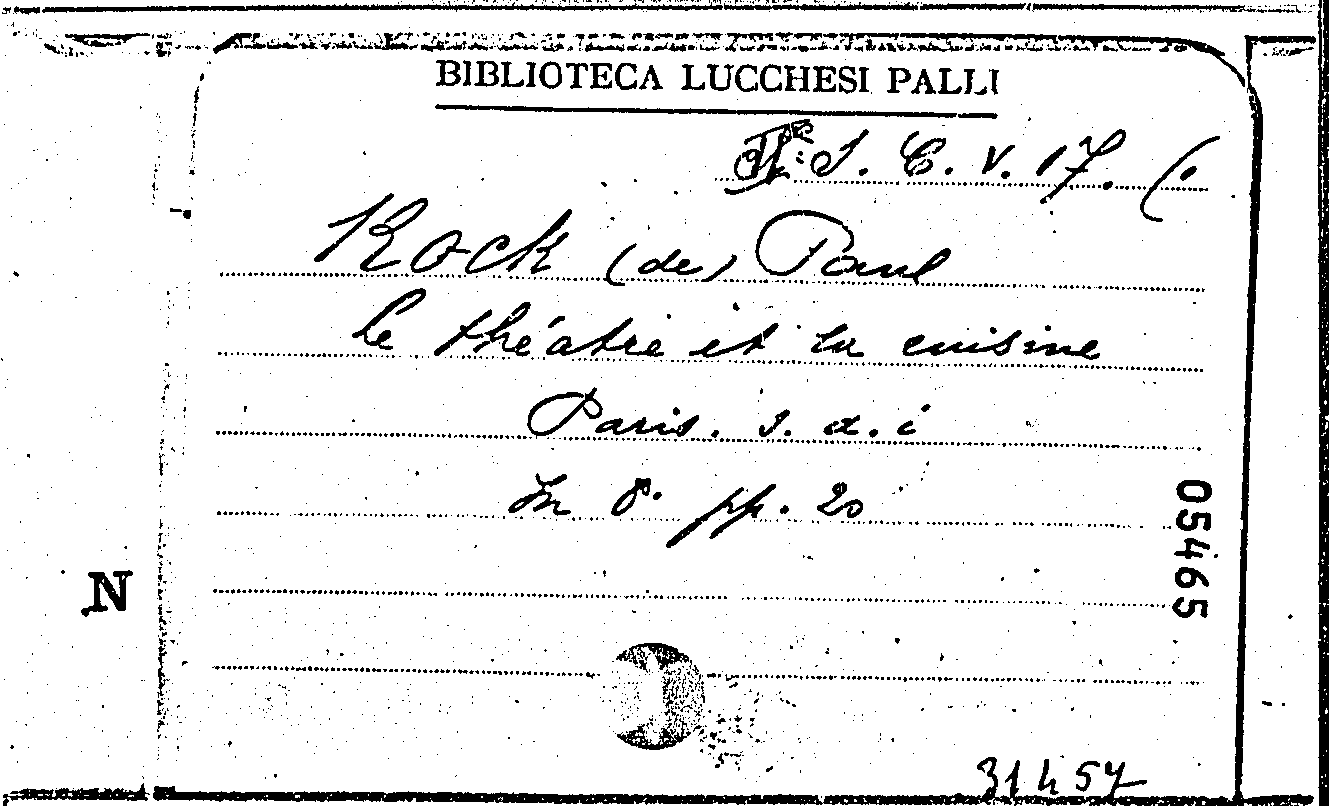 BIBLIOTECA LUCCHESI PALLI
IIª: S. C. V. 17. (.
Kock (de) Paul
Le théatre et la cuisine
Paris. s. d. i
In 8º. pp. 20
05465
N
31457